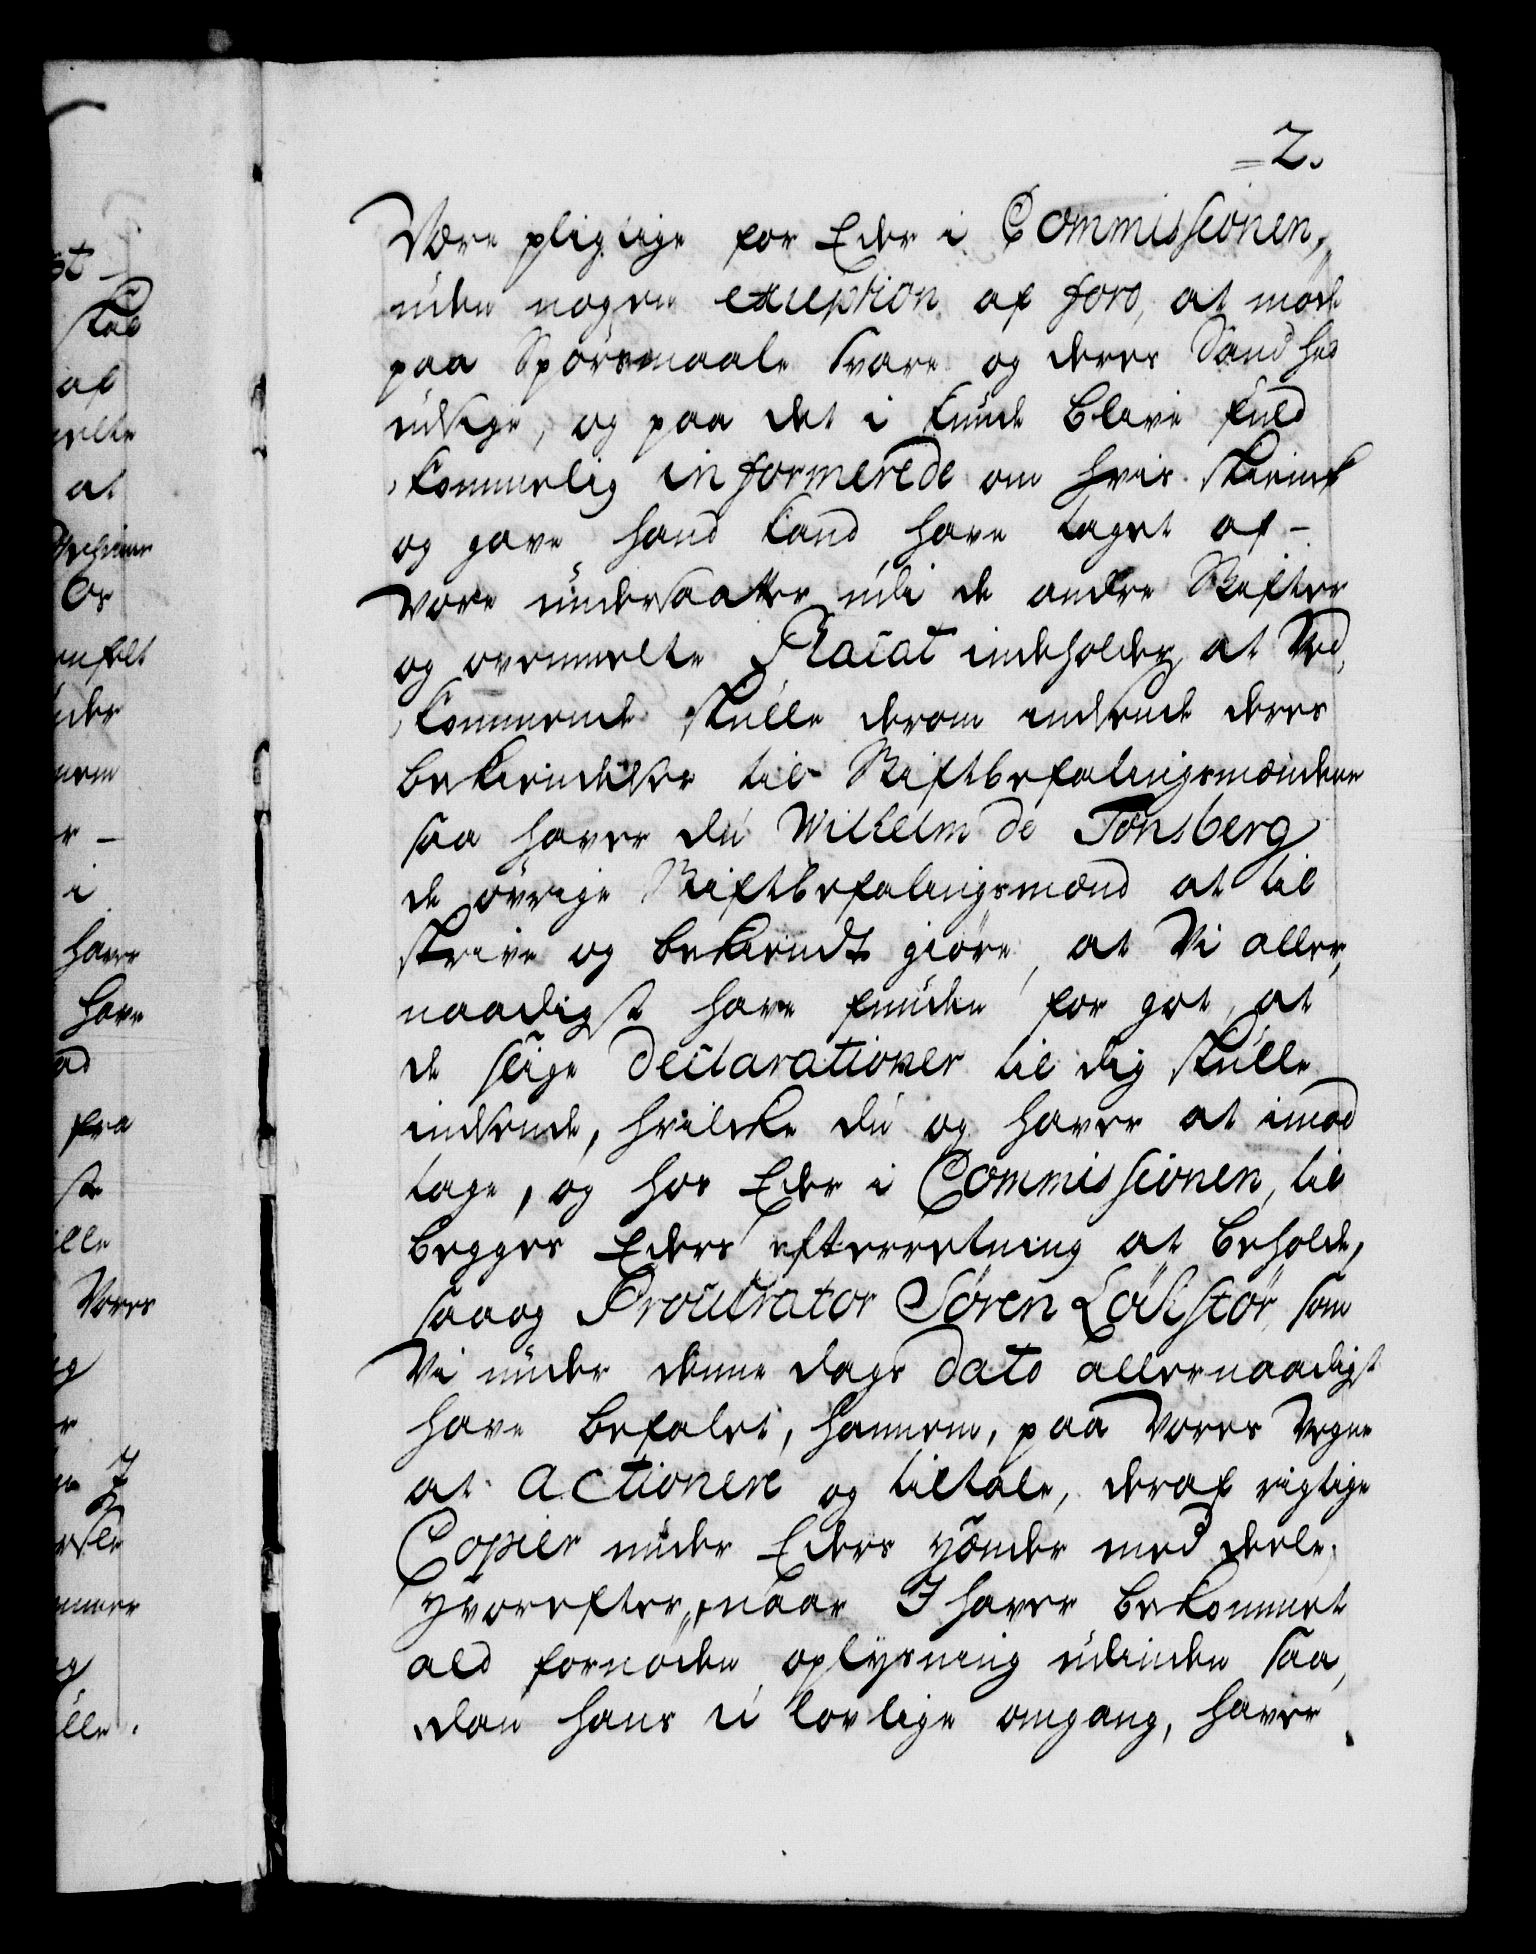 2.
Være pligtige for Eder i Commissionen,
uden nogen exception af foro, at møde
paa Spörsmaale svare og deres Sandhed
udsige, og paa det i kunde blive fuld
kommelig informerede om hvis skienk
og gave hand kand have taget af
vore undersaatter udi de andre Stifter
og ovenmelte Placat indeholder, at Ved,
kommende skulle derom indsende deres
bekiendelser til Stiftbefalingsmændene
saa haver du Wilhelm de Tonsberg
de övrige Stiftbefalingsmænd at til
skrive og bekiendt giöre, at Vi aller,
naadigst have funden for got, at
de slige declarationer til dig skulle
indsende, hvilcke du og haver at imod
tage, og hos Eder i Commissionen, til
begges Eders efterretning at beholde,
saaog Procurator Sören Löchstör, som
Vi under denne dags dato allernaadigst
have befalet, hannem, paa Vores Vegne
at actionere og tiltale, deraf rigtige
Copier under Eders hænder med deele,
hvorefter, naar I haver bekommet
ald fornöden oplysning udinden saa,
dan hans u lovlige omgang, haver